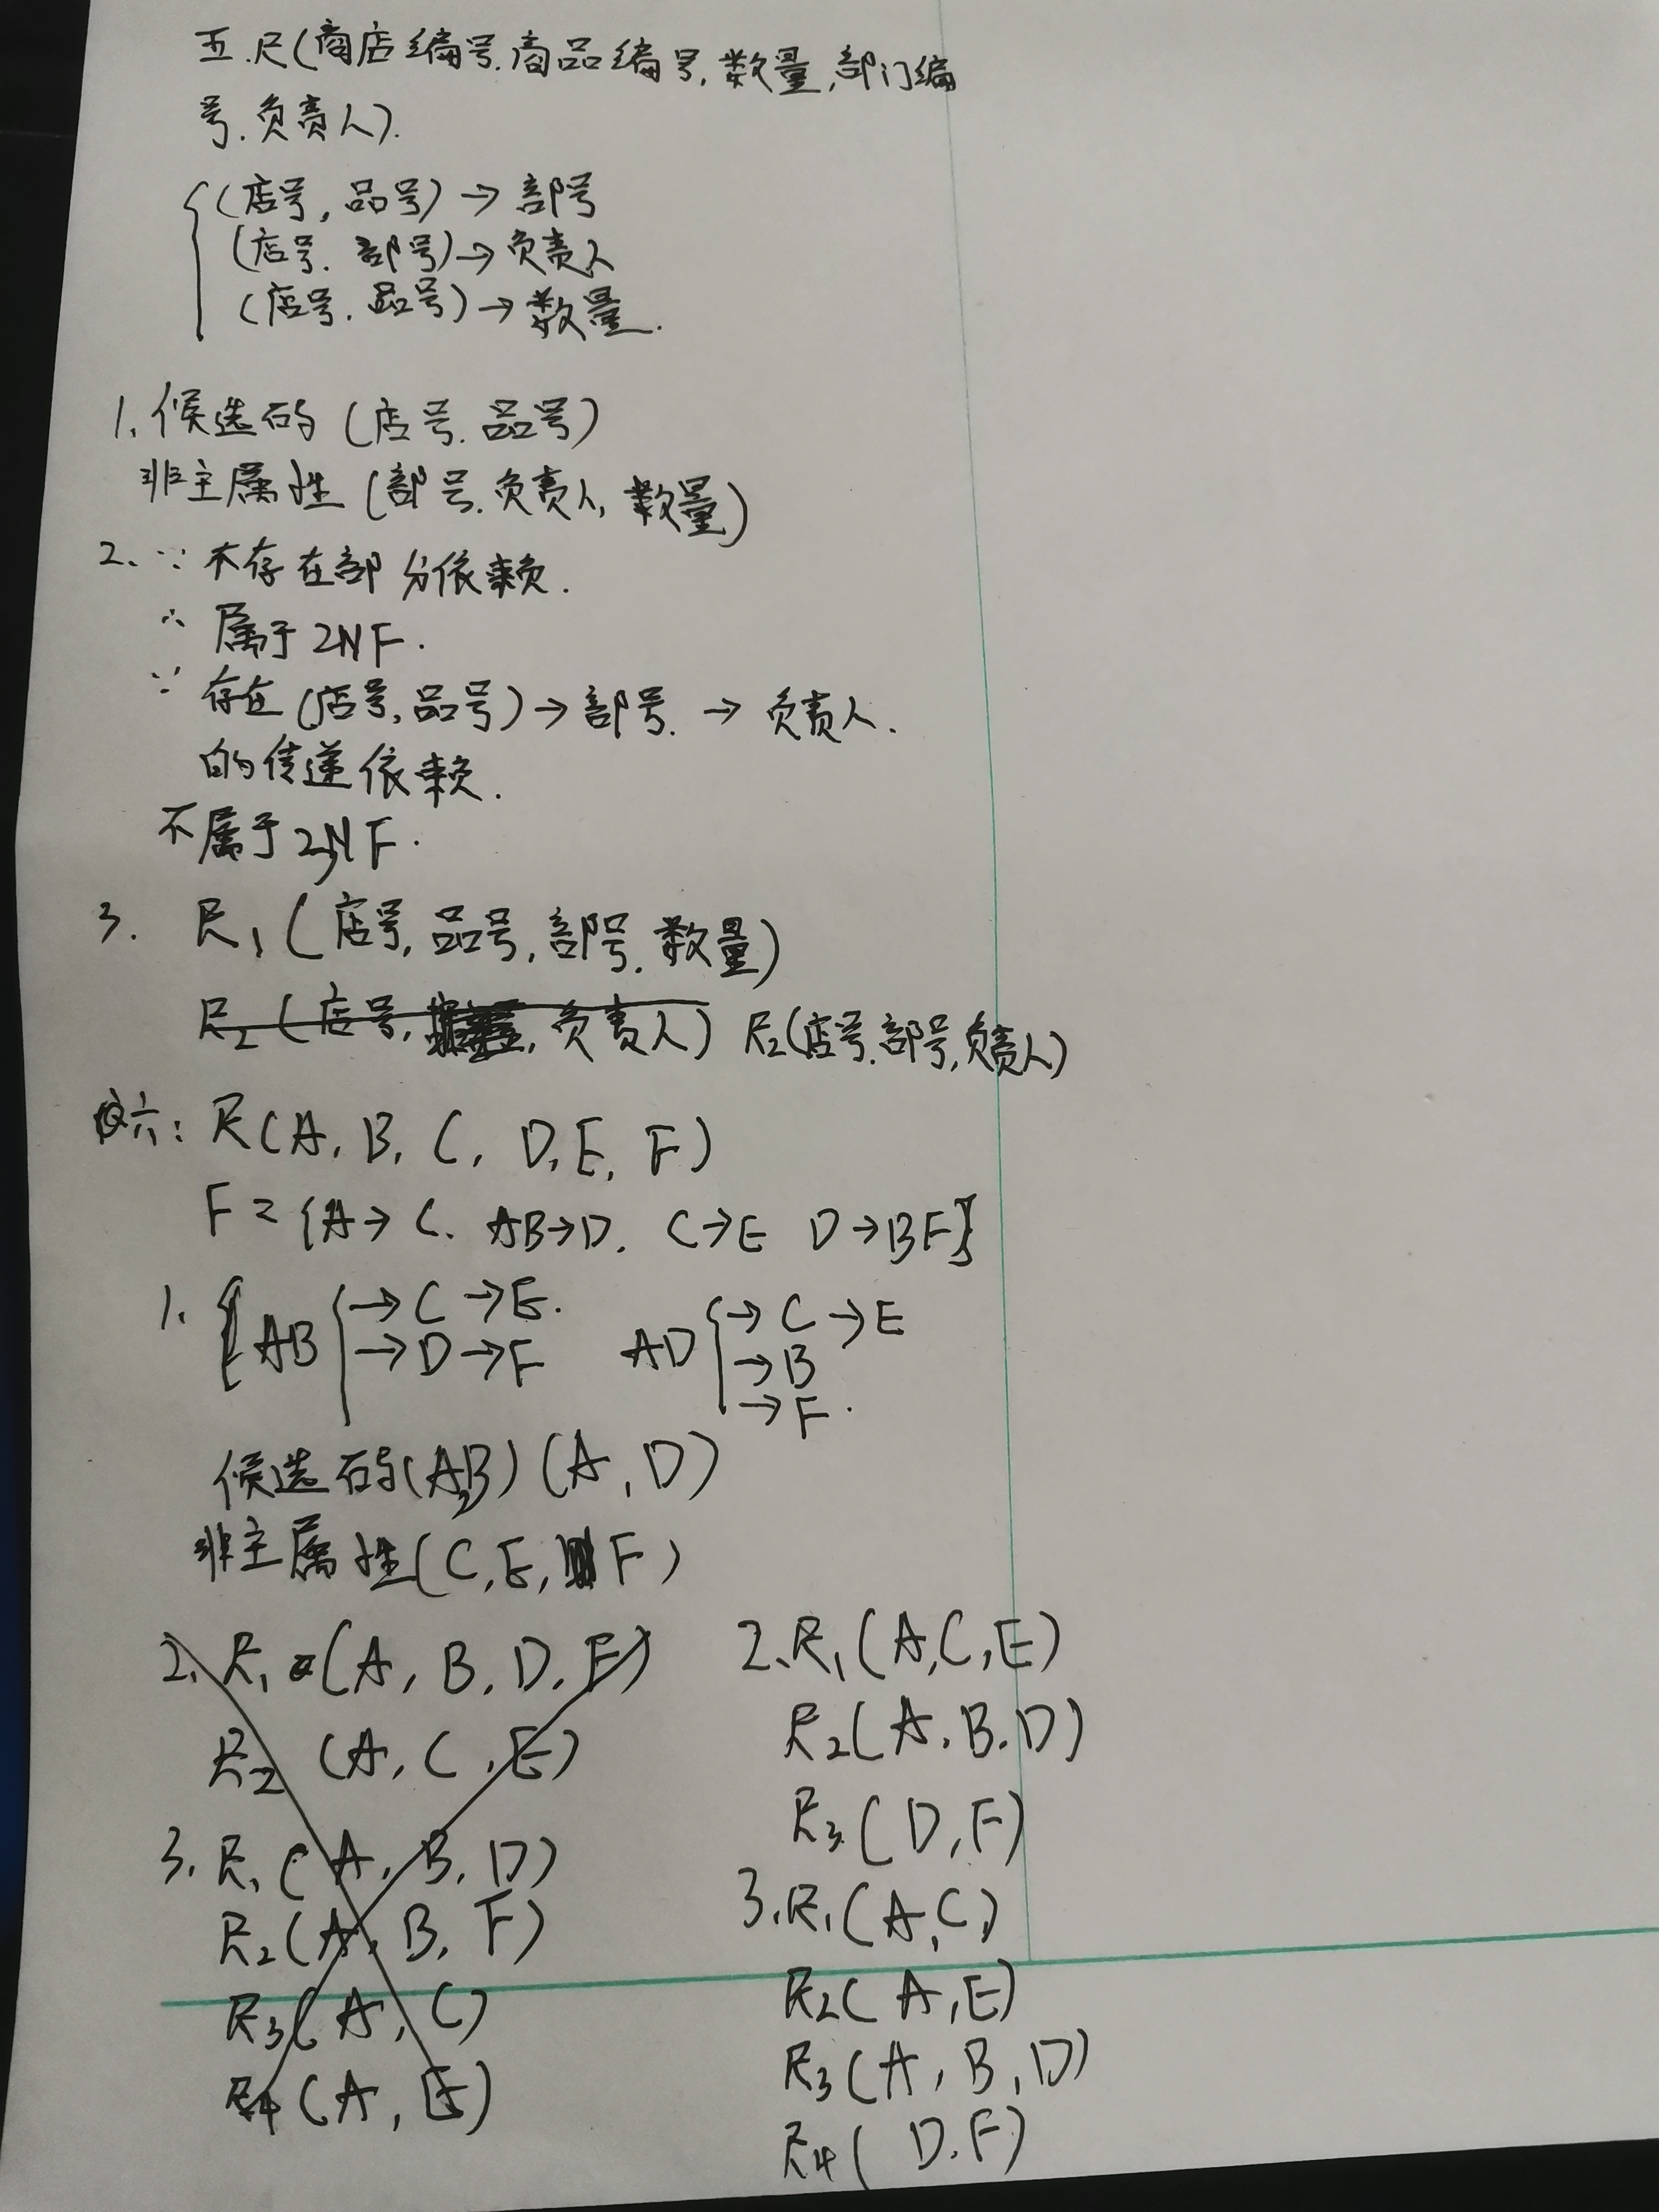 五.R(商店编号.商品编号,数量,部门编
号.负责人).
(店号,品号)→部号
(店号.部号)→负责人
(店号.品号)→数量.
1.候选码(店号.品号)
非主属性(部号.负责人,数量)
2.∵不存在部分依赖.
∴属于2NF.
∵存在(店号,品号)→部号.→负责人.
的传递依赖.
不属于3NF.
3. R1(店号,品号,部号.数量)
R2(店号, ,负责人) R2(店号.部号,负责人)
六:R(A,B,C,D,E,F)
F={A→C.AB→D.C→E D→BF}
1. AB →C→E. AD →C→E
→D→F →B
→F.
候选码(A,B)(A,D)
非主属性(C,E,F)
2.R1(A,B,D,F)
R2(A,C,E)
3.R1(A,B,D)
R2(A,B,F)
R3(A,C)
R4(A,E)
2.R1(A,C,E)
R2(A,B.D)
R3(D,F)
3.R1(A,C)
R2(A,E)
R3(A,B,D)
R4(D.F)